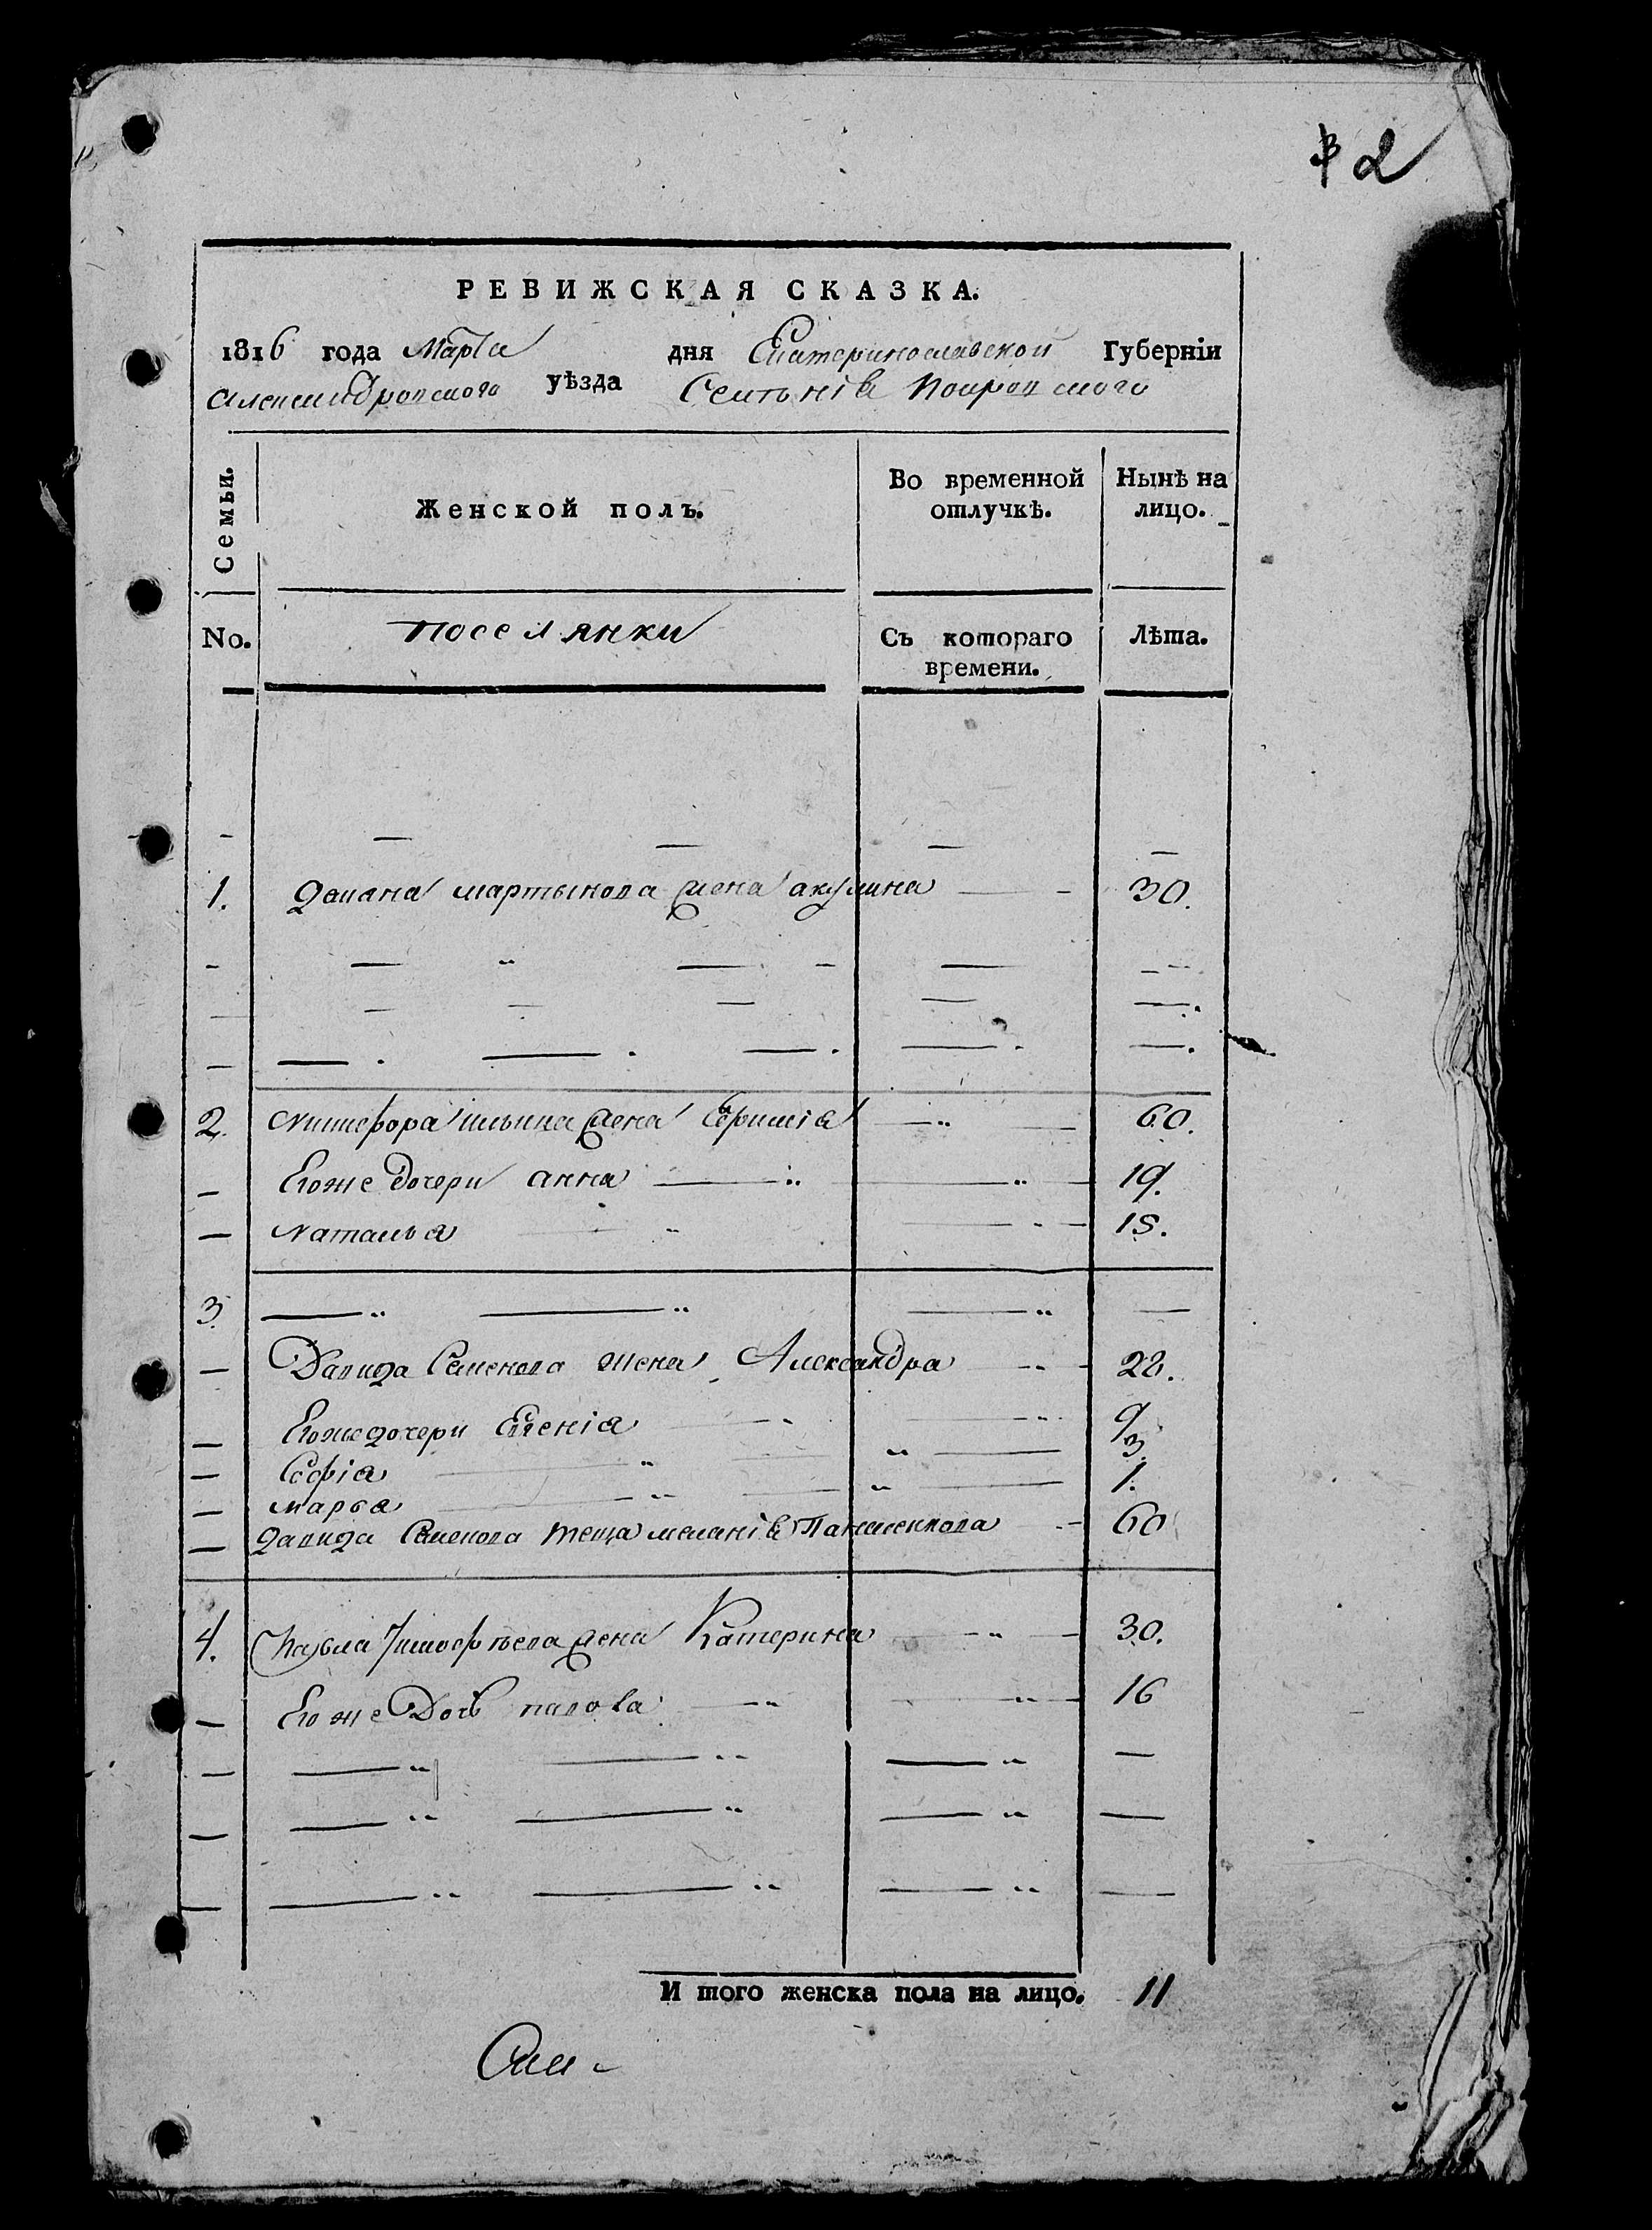 2
РЕВИЖСКАЯ СКАЗКА.
1816 года Марта дня Екатеринославской Губерніи
Александровского уѣзда Селенія Покровского
Семьи. Женской полъ. Во временной отлучкѣ. Нынѣ на лицо.
No. поселянки Съ котораго времени. Лѣта.
1. Демяна мартынова жена акулина 30.
2. Никифора ильина жена 60.
Егоже дочери анна 19.
Наталья 15.
3.
Давида Семенова жена Александра 28.
Егоже дочери Евгенія 9
Софіа 3.
марья 1.
давида Семенова теща меланія 60
4. Павла жена Катерина 30.
Егоже Дочь 16
И того женска пола на лицо. 11